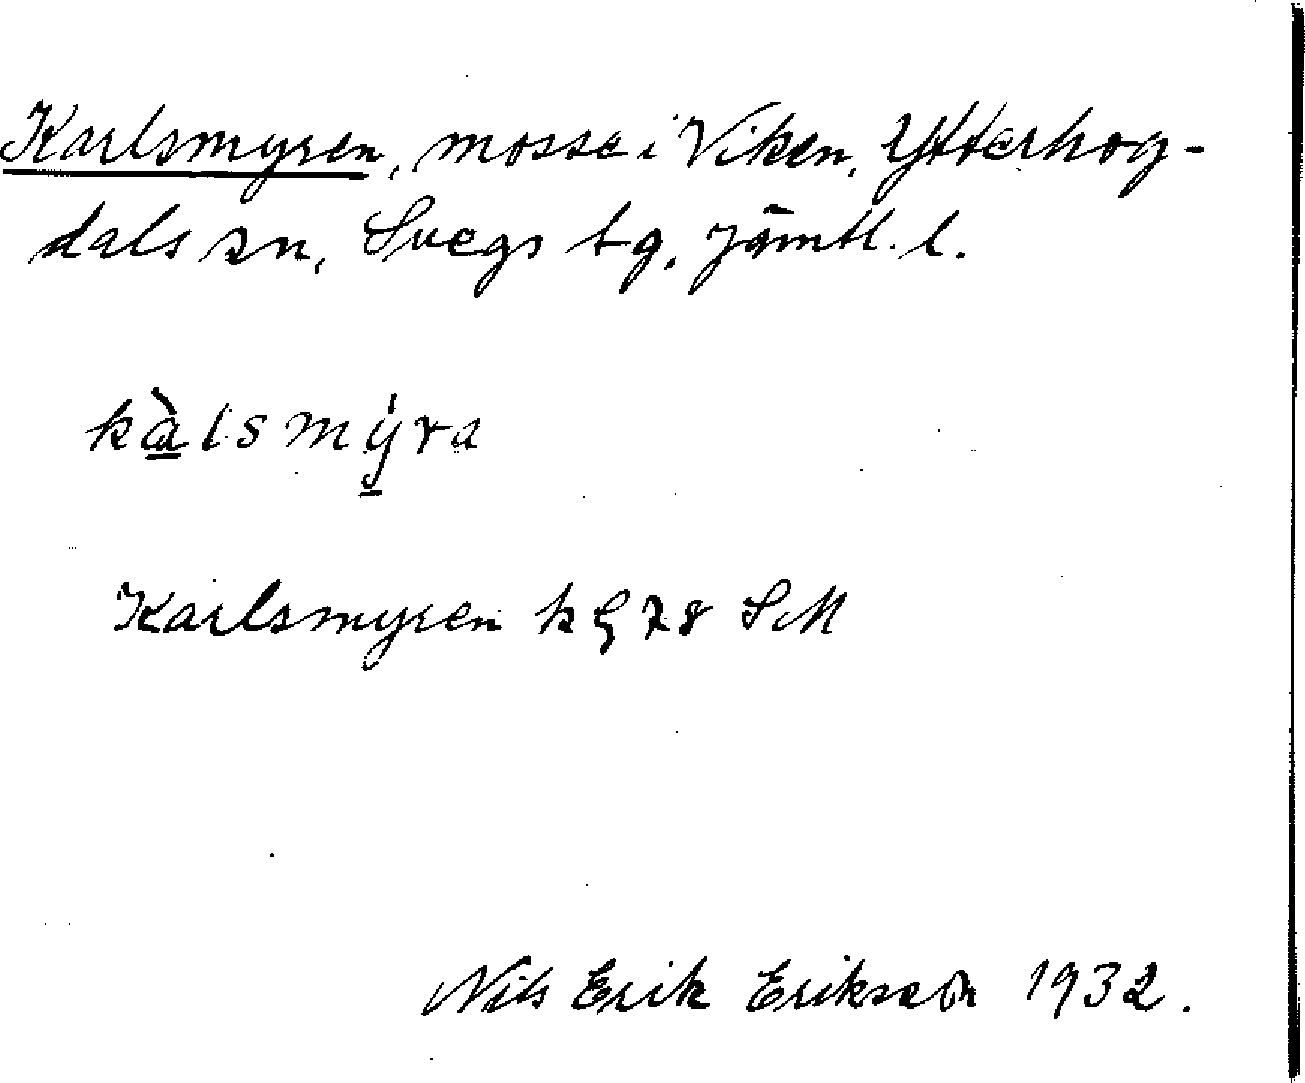 Karlsmyren, mosse i Viken, Ytterhog-
dals sn, Svegs tg, Jämtl. l.
kàlsmýra
Karlsmyren k G 78 SM
Nils Erik Eriksson 1932.